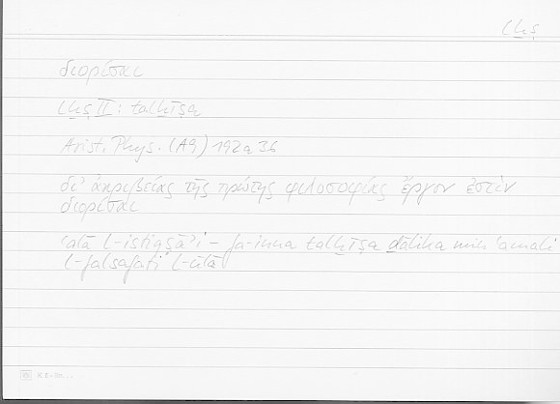 lḫṣ
διορίσαι
lḫṣ II : talḫīṣa
Arist. Phys. (A9) 192a36
δι' ἀκριβείας τῆς πρώτης φιλοσοφίας ἔργον ἐστὶν
διορίσαι
'alā l-istiqṣā'i – fa-inna talḫīṣa ḏālika min 'amali
l-falsafati l-ūlā